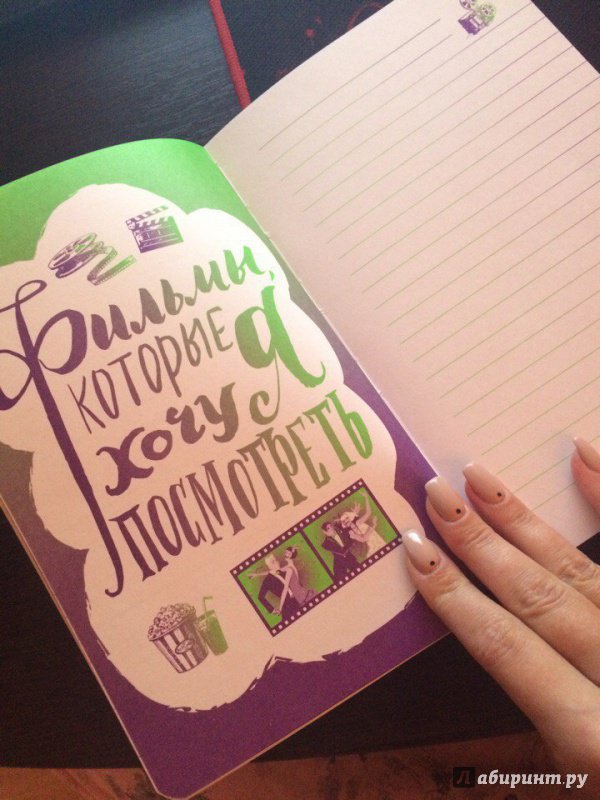 Фильмы,
которые я
хочу
посмотреть
Лабиринт.ру